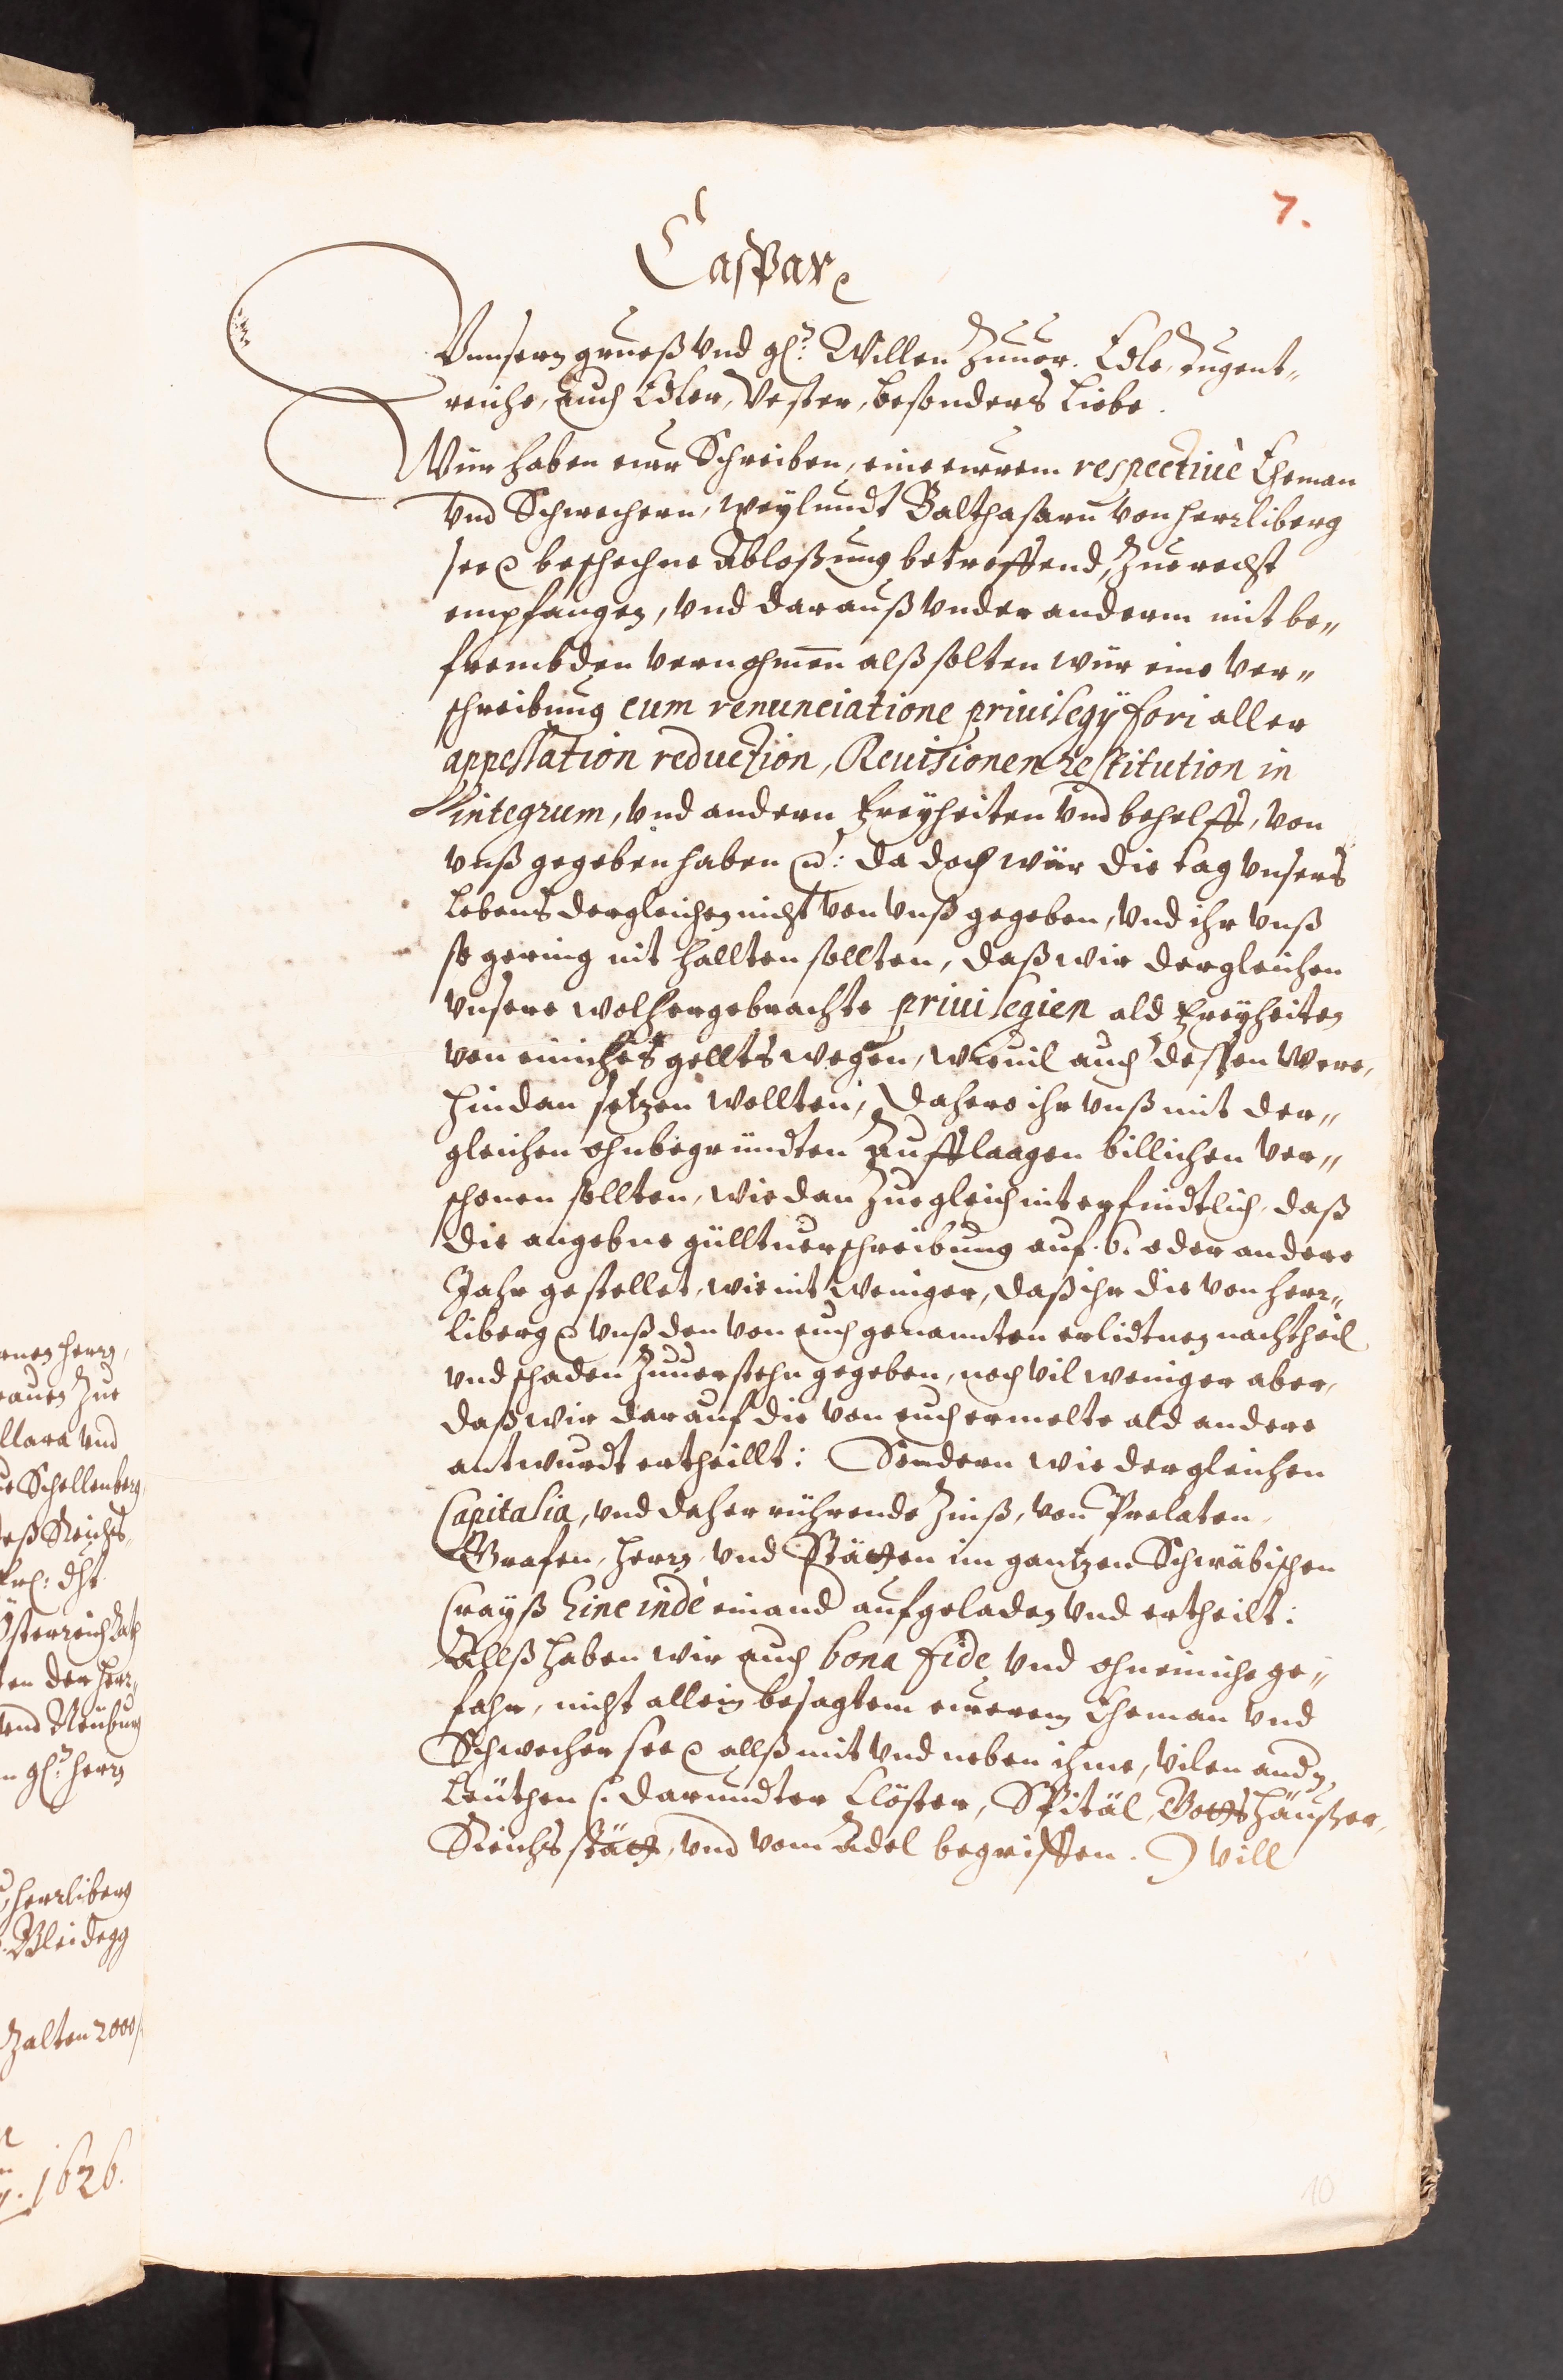 7.
Caspar
Vnnsern grueß vnd gl: Willen Zuuor. Edle, tugent„
reiche, auch Edler, Vester, besonders Liebe.
Wür haben eur Schreiben, eine eurem respectiuè Eheman
vnd Schwechern, weylundt Balthasarn von Herrliberg
see beschechne Abloßung betreffend, Zue recht
empfangen, vnd darauß vnder anderm mit be„
frembden vernohmen alß solten wür eine ver„
schreibung cum renunciatione priuilegÿ fori aller
appellation reduction, Reuisionen restitution in
integrum, vnd andern Freyheiten vnd behelff, von
vnß gegeben haben : da doch wür die tag vnsers
Lebens dergleichen nicht von vnß gegeben, vnd ihr vnß
so gering nit hallten sollten, daß wir dergleichen
vnsere wolhergebrachte priuilegien ald Freyheiten
von einiches gellts wegen, wieuil auch dessen were,
hindan setzen wollten, Dahero ihr vnß mit der„
gleichen ohnbegründten Aufflaagen billichen ver„
schonen sollten, wie dan Zuegleich nit erfindtlich, daß
die angebne gülltuerschreibung auf .6. oder andere
Jahr gestellet, wie nit weniger, daß ihr die von Herr„
liberg vnß den von euch genannten erlidtnen nachtheil
vnd schaden Zuuerstehn gegeben, noch vil weniger aber,
daß wir darauf die von euch ermelte ald andere
antwurdt ertheillt: Sondern wie dergleichen
Capitalia, vnd daher rührende Zinß, von Prelaten,
Grafen, Herrn, vnd Stätten im gantzen Schwäbischen
Crayß hinc indè einand aufgeladen vnd ertheilt:
Allß haben wir auch bona fide vnd ohn einiche ge„
fahr, nicht allein besagtem eurem Eheman vnd
Schwecher see allß mit vnd neben ihme, vilen andn
Leüthen (: darundter Clöster, Spitäl, Gottshäußer,
Reichsstätt, vnd vom Adel begriffen. :) vill
10
ernen Herrn,
rauen Zue
llara vnd
Schellenberg,
eß Reichs
dht
Österreich
ten der Herr„
vnd Neüburg
gl: Herrn
Herrliberg
Bleidegg
Zalten 2000
1626.